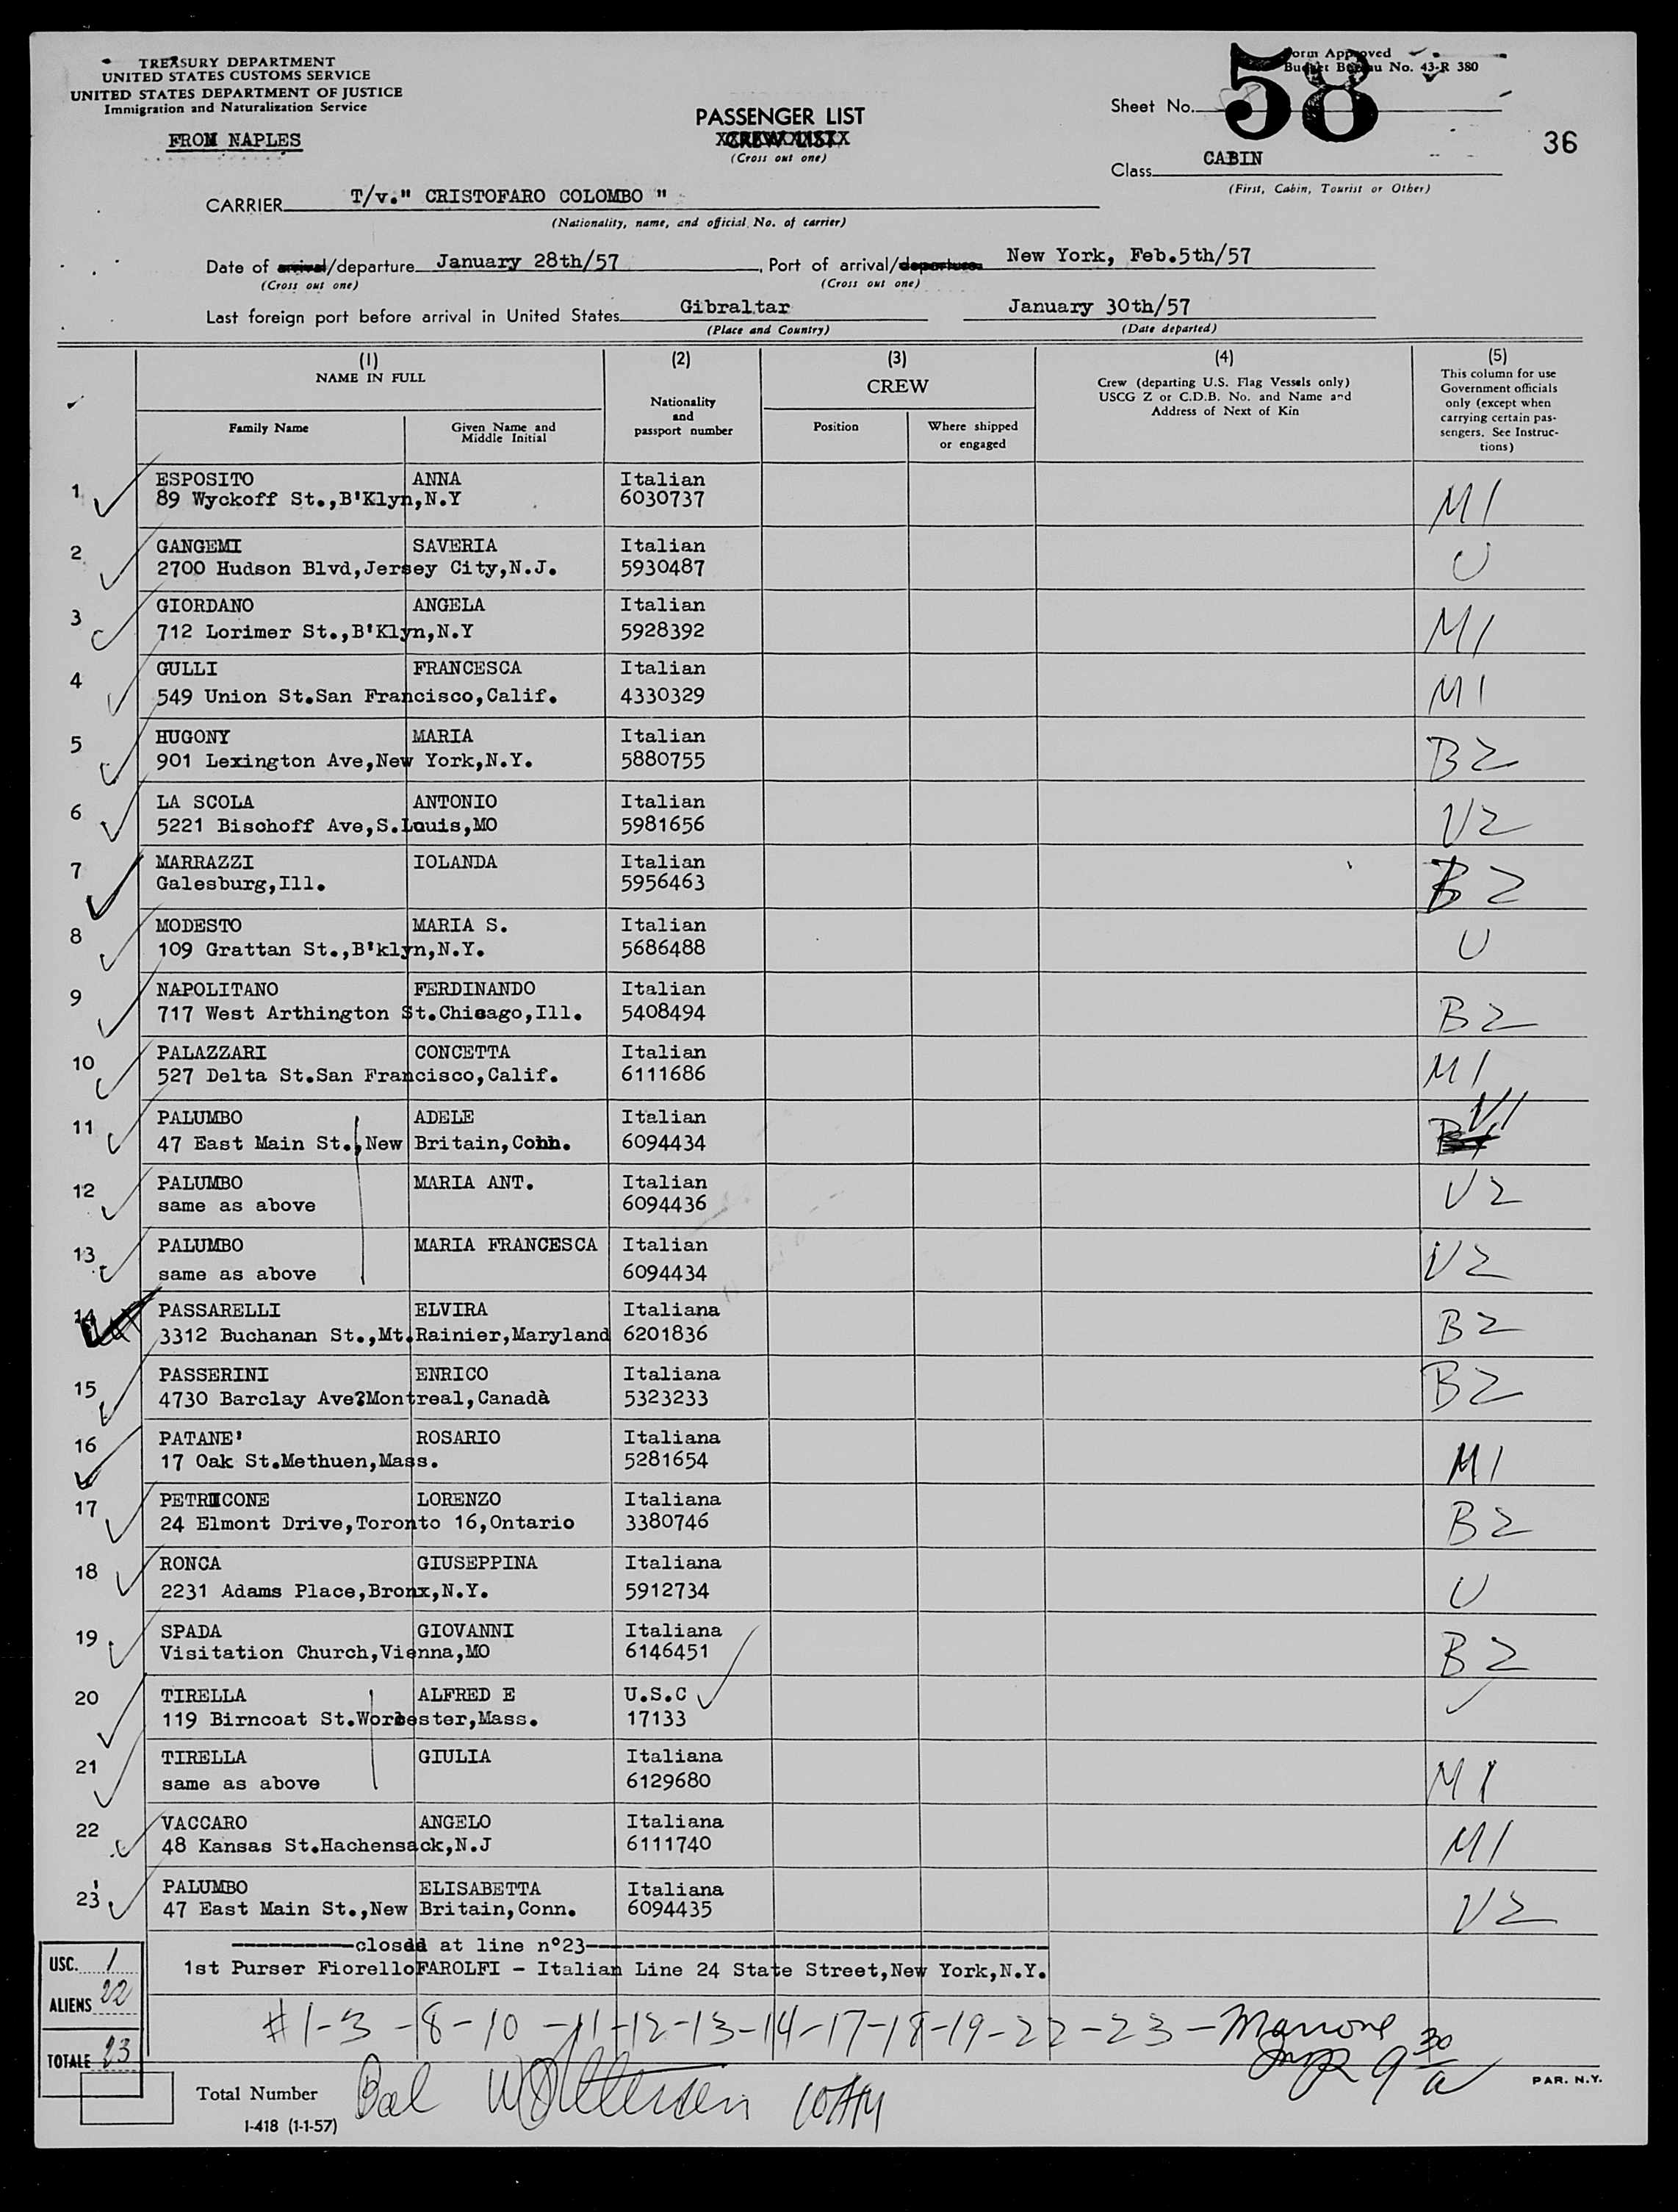 TREASURY DEPARTMENT
UNITED STATES CUSTOMS SERVICE
UNITED STATES DEPARTMENT OF JUSTICE
Immigration and Naturalization Service
FROM NAPLES
Form Approved
Budget Bureau No. 43-R 380
Sheet No. 58
36
PASSENGER LIST
CREW LIST
(Cross out one)
Class CABIN
(First, Cabin, Tourist or Other)
CARRIER T/v." CRISTOFARO COLOMBO "
(Nationality, name, and official No. of carrier)
Date of arrival/departure January 28th/57, Port of arrival/departure New York, Feb.5th/57
(Cross out one) (Cross out one)
Last foreign port before arrival in United States Gibraltar January 30th/57
(Place and Country) (Date departed)
(1) (2) (3) (4) (5)
NAME IN FULL
Family Name
Given Name and
Middle Initial
Nationality
and
passport number
CREW
Position
Where shipped
or engaged
Crew (departing U.S. Flag Vessels only)
USCG Z or C.D.B. No. and Name and
Address of Next of Kin
This column for use
Government officials
only (except when
carrying certain pas-
sengers. See Instruc-
tions)
1 ESPOSITO ANNA Italian
89 Wyckoff St.,B'Klyn,N.Y 6030737 M1
2 GANGEMI SAVERIA Italian
2700 Hudson Blvd,Jersey City,N.J. 5930487 U
3 GIORDANO ANGELA Italian
712 Lorimer St.,B'Klyn,N.Y 5928392 M1
4 GULLI FRANCESCA Italian
549 Union St.San Francisco,Calif. 4330329 M1
5 HUGONY MARIA Italian
901 Lexington Ave,New York,N.Y. 5880755 B2
6 LA SCOLA ANTONIO Italian
5221 Bischoff Ave,S.Louis,MO 5981656 V2
7 MARRAZZI IOLANDA Italian
Galesburg,Ill. 5956463 B2
8 MODESTO MARIA S. Italian
109 Grattan St.,B'klyn,N.Y. 5686488 U
9 NAPOLITANO FERDINANDO Italian
717 West Arthington St.Chicago,Ill. 5408494 B2
10 PALAZZARI CONCETTA Italian
527 Delta St.San Francisco,Calif. 6111686 M1
11 PALUMBO ADELE Italian V1
47 East Main St.,New Britain,Conn. 6094434
12 PALUMBO MARIA ANT. Italian
same as above 6094436 V2
13 PALUMBO MARIA FRANCESCA Italian
same as above 6094434 V2
14 PASSARELLI ELVIRA Italiana
3312 Buchanan St.,Mt.Rainier,Maryland 6201836 B2
15 PASSERINI ENRICO Italiana
4730 Barclay Ave?Montreal,Canadà 5323233 B2
16 PATANE' ROSARIO Italiana
17 Oak St.Methuen,Mass. 5281654 M1
17 PETRICONE LORENZO Italiana
24 Elmont Drive,Toronto 16,Ontario 3380746 B2
18 RONCA GIUSEPPINA Italiana
2231 Adams Place,Bronx,N.Y. 5912734 U
19 SPADA GIOVANNI Italiana
Visitation Church,Vienna,MO 6146451 B2
20 TIRELLA ALFRED E U.S.C
119 Birncoat St.Worcester,Mass. 17133
21 TIRELLA GIULIA Italiana
same as above 6129680 M1
22 VACCARO ANGELO Italiana
48 Kansas St.Hachensack,N.J 6111740 M1
23 PALUMBO ELISABETTA Italiana
47 East Main St.,New Britain,Conn. 6094435 V2
----------closed at line n°23----------
1st Purser Fiorello FAROLFI - Italian Line 24 State Street,New York,N.Y.
USC. 1
ALIENS 22
TOTALE 23
#1-3-8-10-11-12-13-14-17-18-19-22-23-Marrone
9 30 a
Bal
Total Number
I-418 (1-1-57)
PAR. N.Y.